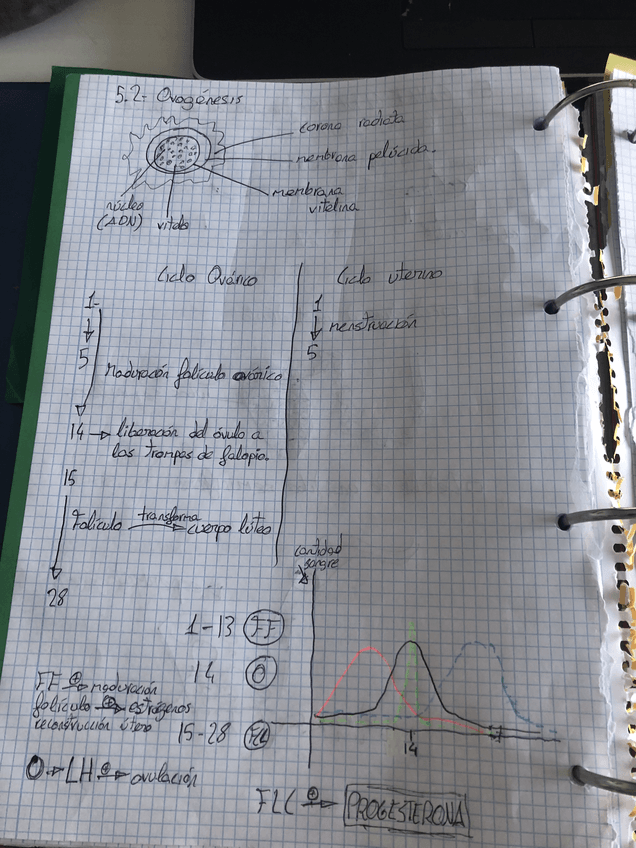 5.2- Ovogénesis
corona radiata
membrana pelúcida
membrana
vitelina
núcleo
(ADN)
vitelo
Ciclo Ovárico
Ciclo uterino
1-
5
Maduración folículo ovárico
14 → liberación del óvulo a
las trompas de falopio.
15
Folículo transforma cuerpo lúteo
28
1
menstruación
5
cantidad
sangre
14
1-13 FF
14 O
15-28 FLC
FF ⊕→ maduración
folículo ⊕→ estrógenos
reconstrucción útero
O → LH ⊕→ ovulación
FLC ⊕→ PROGESTERONA